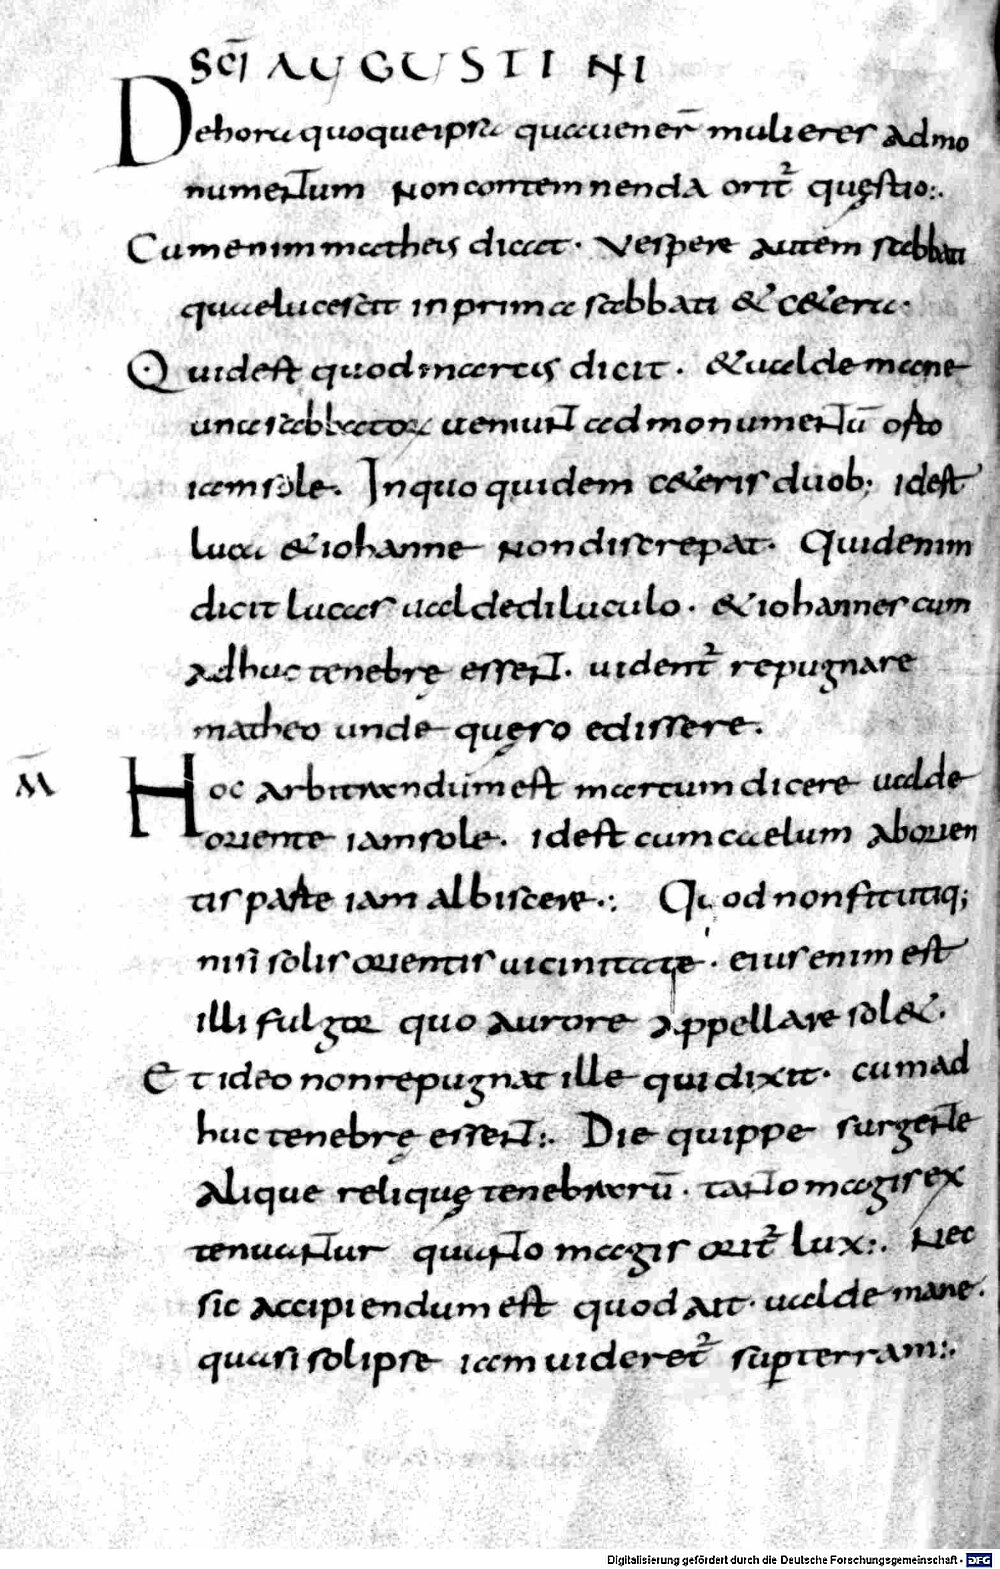 SCI AUGUSTINI
De hora quoque ipsa qua uener̄ mulieres ad mo
numentum non contemnenda orit᷑ quęstio:.
Cum enim matheis dicat. Vespere autem sabbati
quae lucescit in prima sabbati & c&era.
Quid est quod marcus dicit. & ualde mane
una sabbator ueniunt ad monumentū osto
iam sole. In quo quidem c&eris duob; id est
luca & iohanne non discrepat. Quid enim
dicit lucas ualde diluculo. & iohannes cum
adhuc tenebrę essent. uident᷑ repugnare
matheo unde quęro edissere.
M̄
Hoc arbitrandum est marcum dicere ualde
oriente iam sole. id est cum caelum ab orien
tis paste iam albiscere.: Quod non fit utiq;
nisi solis orientis uicinitate. eius enim est
illi fulgor quo aurore appellare sol&.
Et ideo non repugnat ille qui dixit. cum ad
huc tenebrę essent:. Die quippe surgente
alique reliquę tenebrarū. tanto magis ex
tenuantur quanto magis orit᷑ lux:. Nec
sic accipiendum est quod ait. ualde mane.
quasi sol ipse iam uideret᷑ sup terram:.
Digitalisierung gefördert durch die Deutsche Forschungsgemeinschaft - DFG